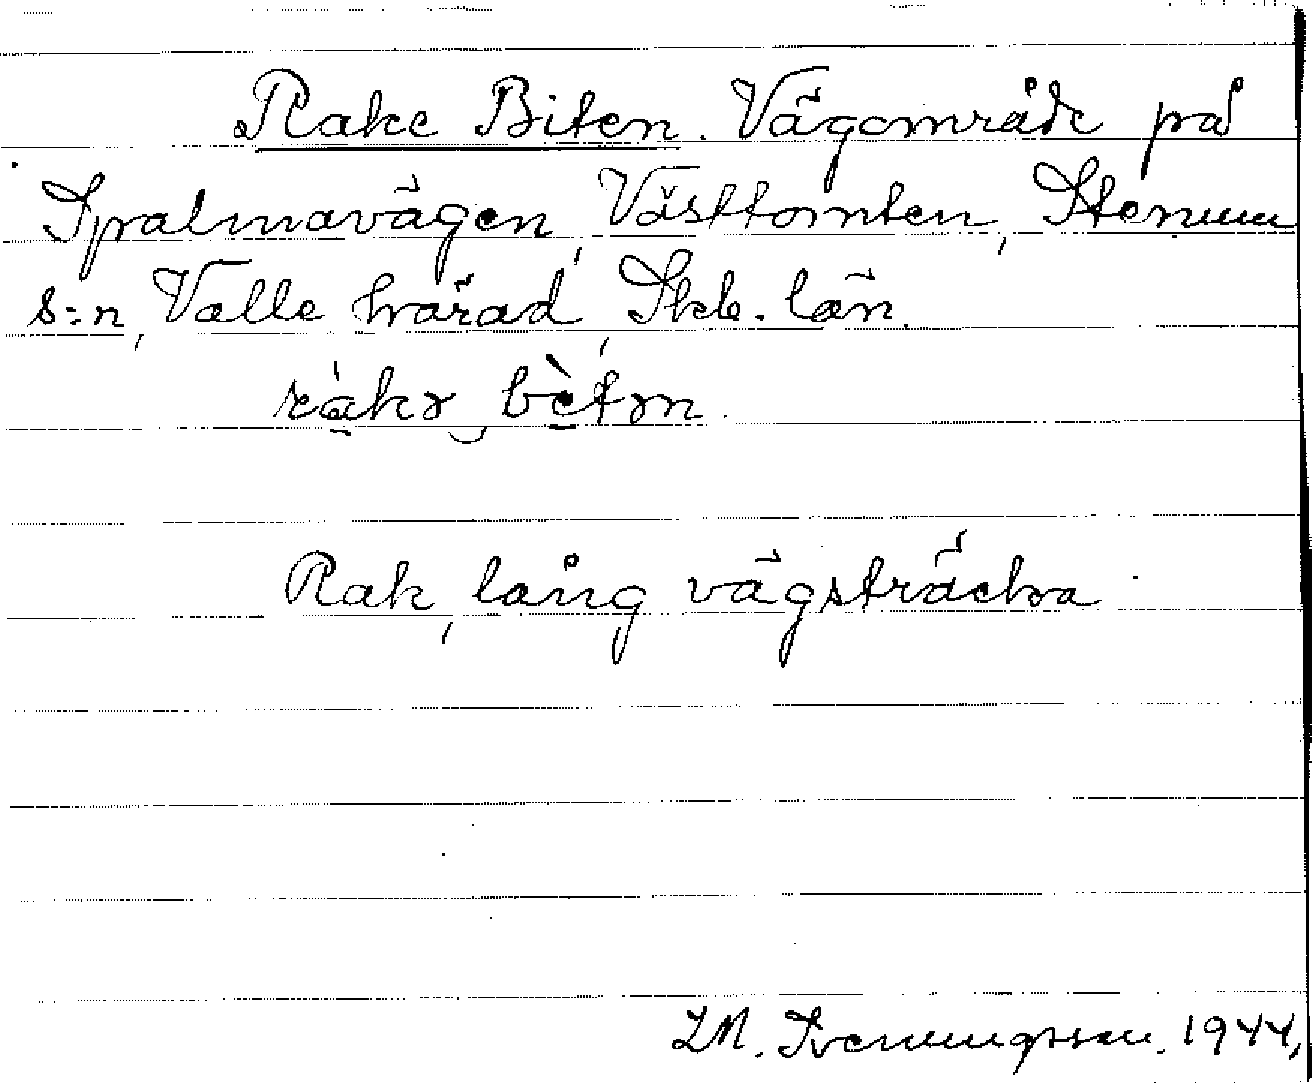 Rake Biten. Vägområde på
Spalmavägen, Västtomten, Stenum
s:n, Valle härad, Skb. län.
Rak, lång vägsträcka
Sveningsson. 1944,